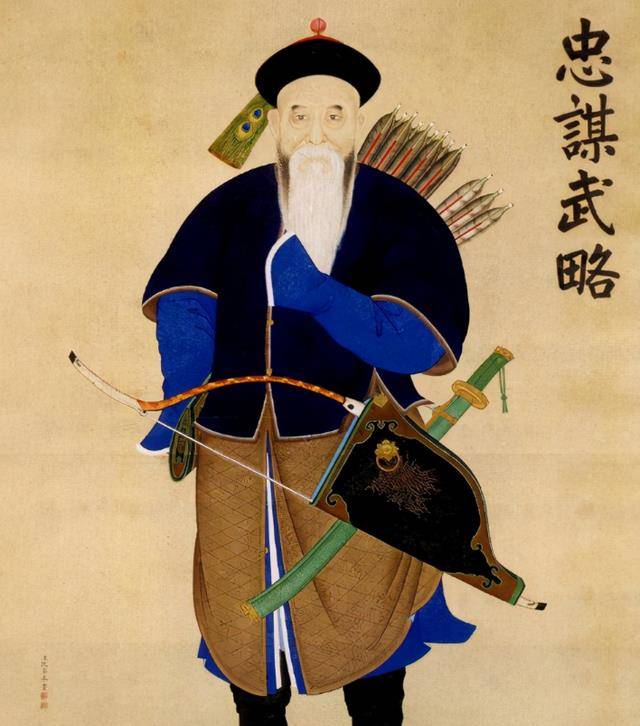 忠謀武略